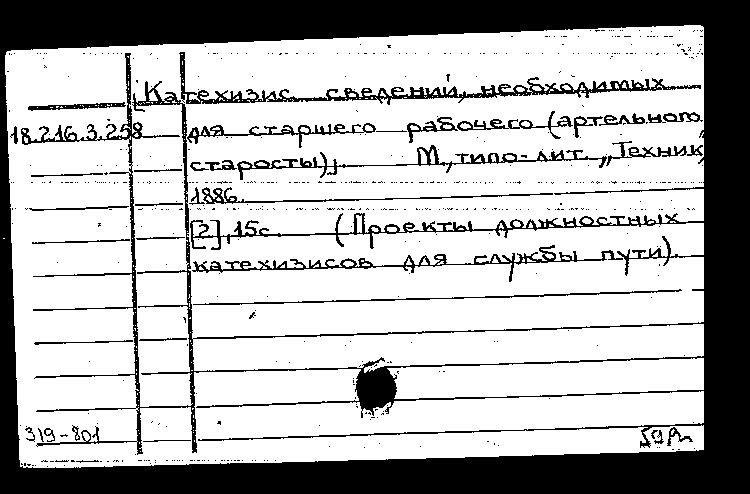 [Катехизис сведений, необходимых
18.216.3.258 для старшего рабочего (артельного
старосты)]. М., типо-лит. „Техник",
1886.
[2], 15с. (Проекты должностных
катехизисов для службы пути).
319-801